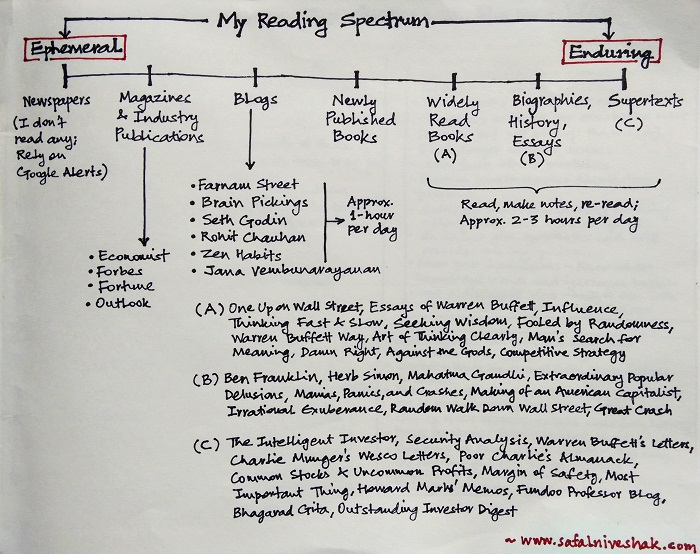 My Reading Spectrum
Ephemeral
Enduring
Newspapers
(I don't
read any;
Rely on
Google Alerts)
Magazines
& Industry
Publications
Blogs
Newly
Published
Books
Widely
Read
Books
(A)
Biographies,
History,
Essays
(B)
Supertexts
(C)
• Economist
• Forbes
• Fortune
• Outlook
• Farnam Street
• Brain Pickings
• Seth Godin
• Rohit Chauhan
• Zen Habits
• Jana Vembunarayanan
Approx.
1-hour
per day
Read, make notes, re-read;
Approx. 2-3 hours per day
(A) One Up on Wall Street, Essays of Warren Buffett, Influence,
Thinking Fast & Slow, Seeking Wisdom, Fooled by Randomness,
Warren Buffett Way, Art of Thinking Clearly, Man's Search for
Meaning, Damn Right, Against the Gods, Competitive Strategy
(B) Ben Franklin, Herb Simon, Mahatma Gandhi, Extraordinary Popular
Delusions, Manias, Panics, and Crashes, Making of an American Capitalist,
Irrational Exuberance, Random Walk Down Wall Street, Great Crash
(C) The Intelligent Investor, Security Analysis, Warren Buffett's Letters,
Charlie Munger's Wesco Letters, Poor Charlie's Almanack,
Common Stocks & Uncommon Profits, Margin of Safety, Most
Important Thing, Howard Marks' Memos, Fundoo Professor Blog,
Bhagavad Gita, Outstanding Investor Digest
~ www.safalniveshak.com